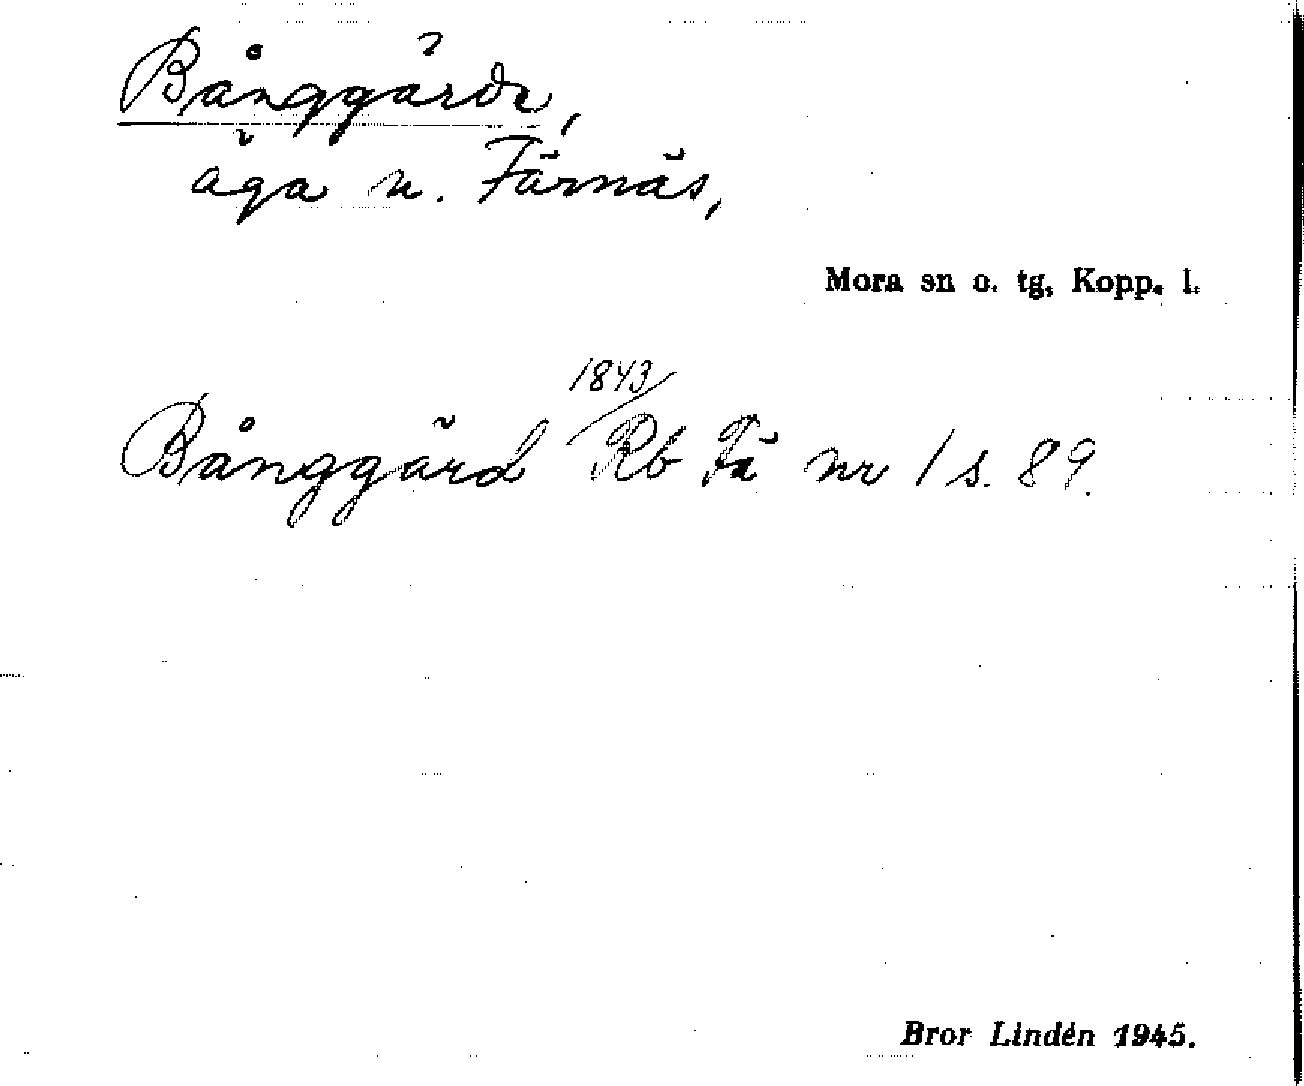 Bånggärde,
äga n. Färnäs,
Mora sn o. tg, Kopp. l.
1843/
Bånggärd Rb Fä nr 1 s. 89.
Bror Lindén 1945.